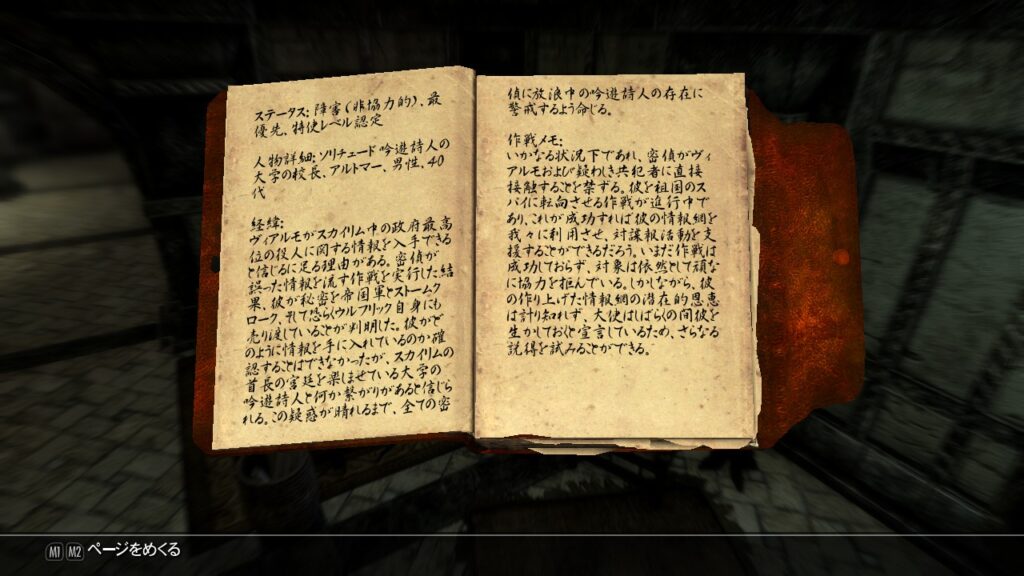 ステータス: 障害(非協力的)、最
優先、特使レベル認定
人物詳細: ソリチュード吟遊詩人の
大学の校長、アルトマー、男性、40
代
経緯:
ヴィアルモがスカイリム中の政府最高
位の役人に関する情報を入手できる
と信じるに足る理由がある。密偵が
誤った情報を流す作戦を実行した結
果、彼が秘密を帝国軍とストームク
ローク、そして恐らくウルフリック自身にも
売り渡していることが判明した。彼がど
のように情報を手に入れているのか確
認することはできなかったが、スカイリムの
首長の宮廷を楽しませている大学の
吟遊詩人と何か繋がりがあると信じら
れる。この疑惑が晴れるまで、全ての密
偵に放浪中の吟遊詩人の存在に
警戒するよう命じる。
作戦メモ:
いかなる状況下であれ、密偵がヴィ
アルモおよび疑わしき共犯者に直接
接触することを禁ずる。彼を祖国のス
パイに転向させる作戦が進行中で
あり、これが成功すれば彼の情報網を
我々に利用させ、対諜報活動を支
援することができるだろう。いまだ作戦は
成功しておらず、対象は依然として頑な
に協力を拒んでいる。しかしながら、彼
の作り上げた情報網の潜在的恩恵
は計り知れず、大使はしばらくの間彼を
生かしておくと宣言しているため、さらなる
説得を試みることができる。
M1 M2 ページをめくる